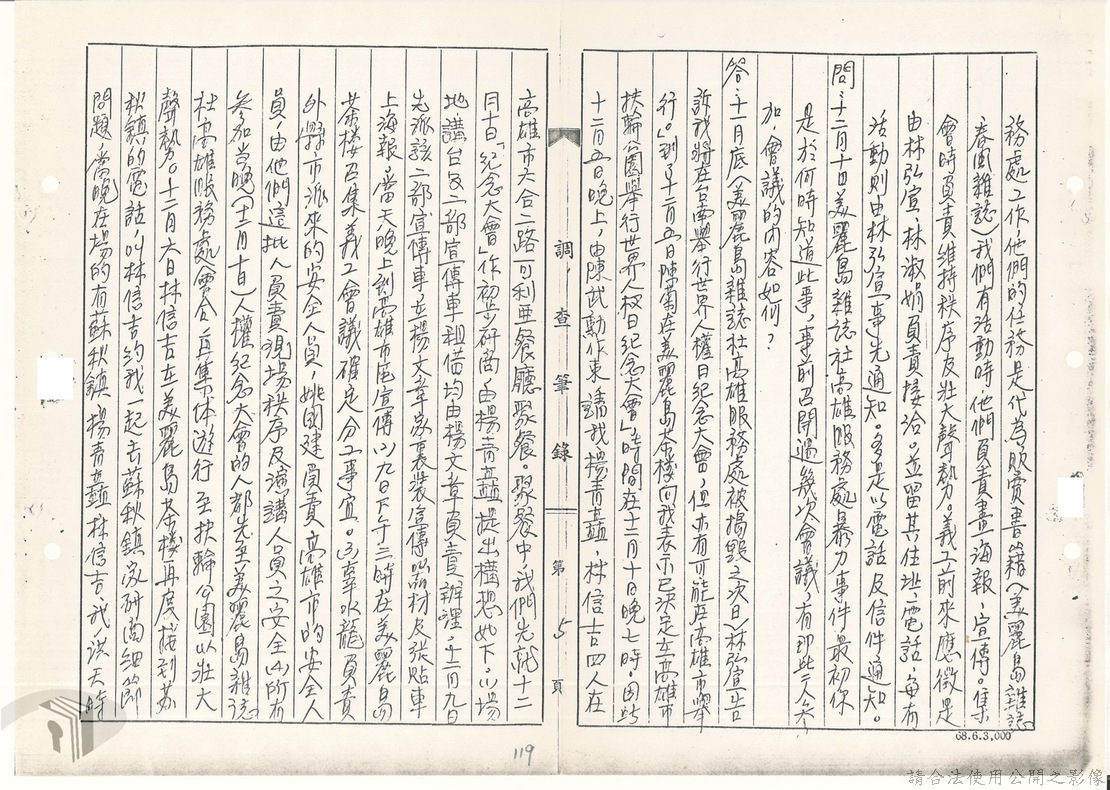 務處工作，他們的任務是代為販賣書籍（美麗島雜誌
春風雜誌）我們有活動時他們負責畫海報，宣傳。集
會時負責維持秩序及壯大聲勢。義工前來應徵是
由林弘宣、林淑娟負責接洽。並留其住址，電話，每有
活動則由林弘宣事先通知。多是以電話及信件通知。
問：十二月十日美麗島雜誌社高雄服務處暴力事件最初你
是於何時知道此事，事前召開過幾次會議，有那些人參
加，會議的內容如何？
答：十一月底（美麗島雜誌社高雄服務處被搗毀之次日）林弘宣告
訴我將在台南舉行世界人權日紀念大會，但亦有可能在高雄市舉
行。」到了十二月五日陳菊在美麗島茶樓向我表示已決定在高雄市
扶輪公園舉行世界人权日紀念大會」時間在十二月十日晚七時。因此
十二月五日晚上，由陳武勳作東請我、楊青矗、林信吉四人在
調查筆錄 第5頁
高雄市六合二路可利亜餐廳聚餐。聚餐中，我們先就十二
月十日「紀念大會」作初步研商，由楊青矗提出構想如下，⑴場
地講台及二部宣傳車租借均由楊文章負責辦理。十二月九日
先派該二部宣傳車在楊文章家裏裝宣傳器材及張貼車
上海報，當天晚上到高雄市區宣傳⑵九日下午三時在美麗島
茶樓召集義工會議確定分工事宜。⑶辛水龍負責
外縣市派來的安全人員，姚國建負責高雄市的安全人
員，由他們這批人員責現場秩序及演講人員之安全⑷所有
參加當晚（十二月十日）人權紀念大會的人都先至美麗島雜誌
社高雄服務處會合，再集体遊行至扶輪公園以壯大
聲勢。十二月六日林信吉在美麗島茶樓再度接到苏
秋鎮的電話，叫林信吉約我一起去蘇秋鎮家研商細節
問題，當晚在場的有蘇秋鎮、楊青矗、林信吉、我、洪天時
119
68.6.3,000
請合法使用公開之影像